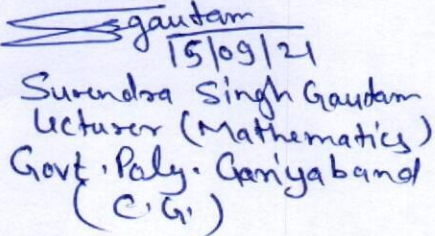 Sgautam
15/09/21
Surendra Singh Gautam
Lecturer (Mathematics)
Govt. Poly. Gariyaband
(C.G.)